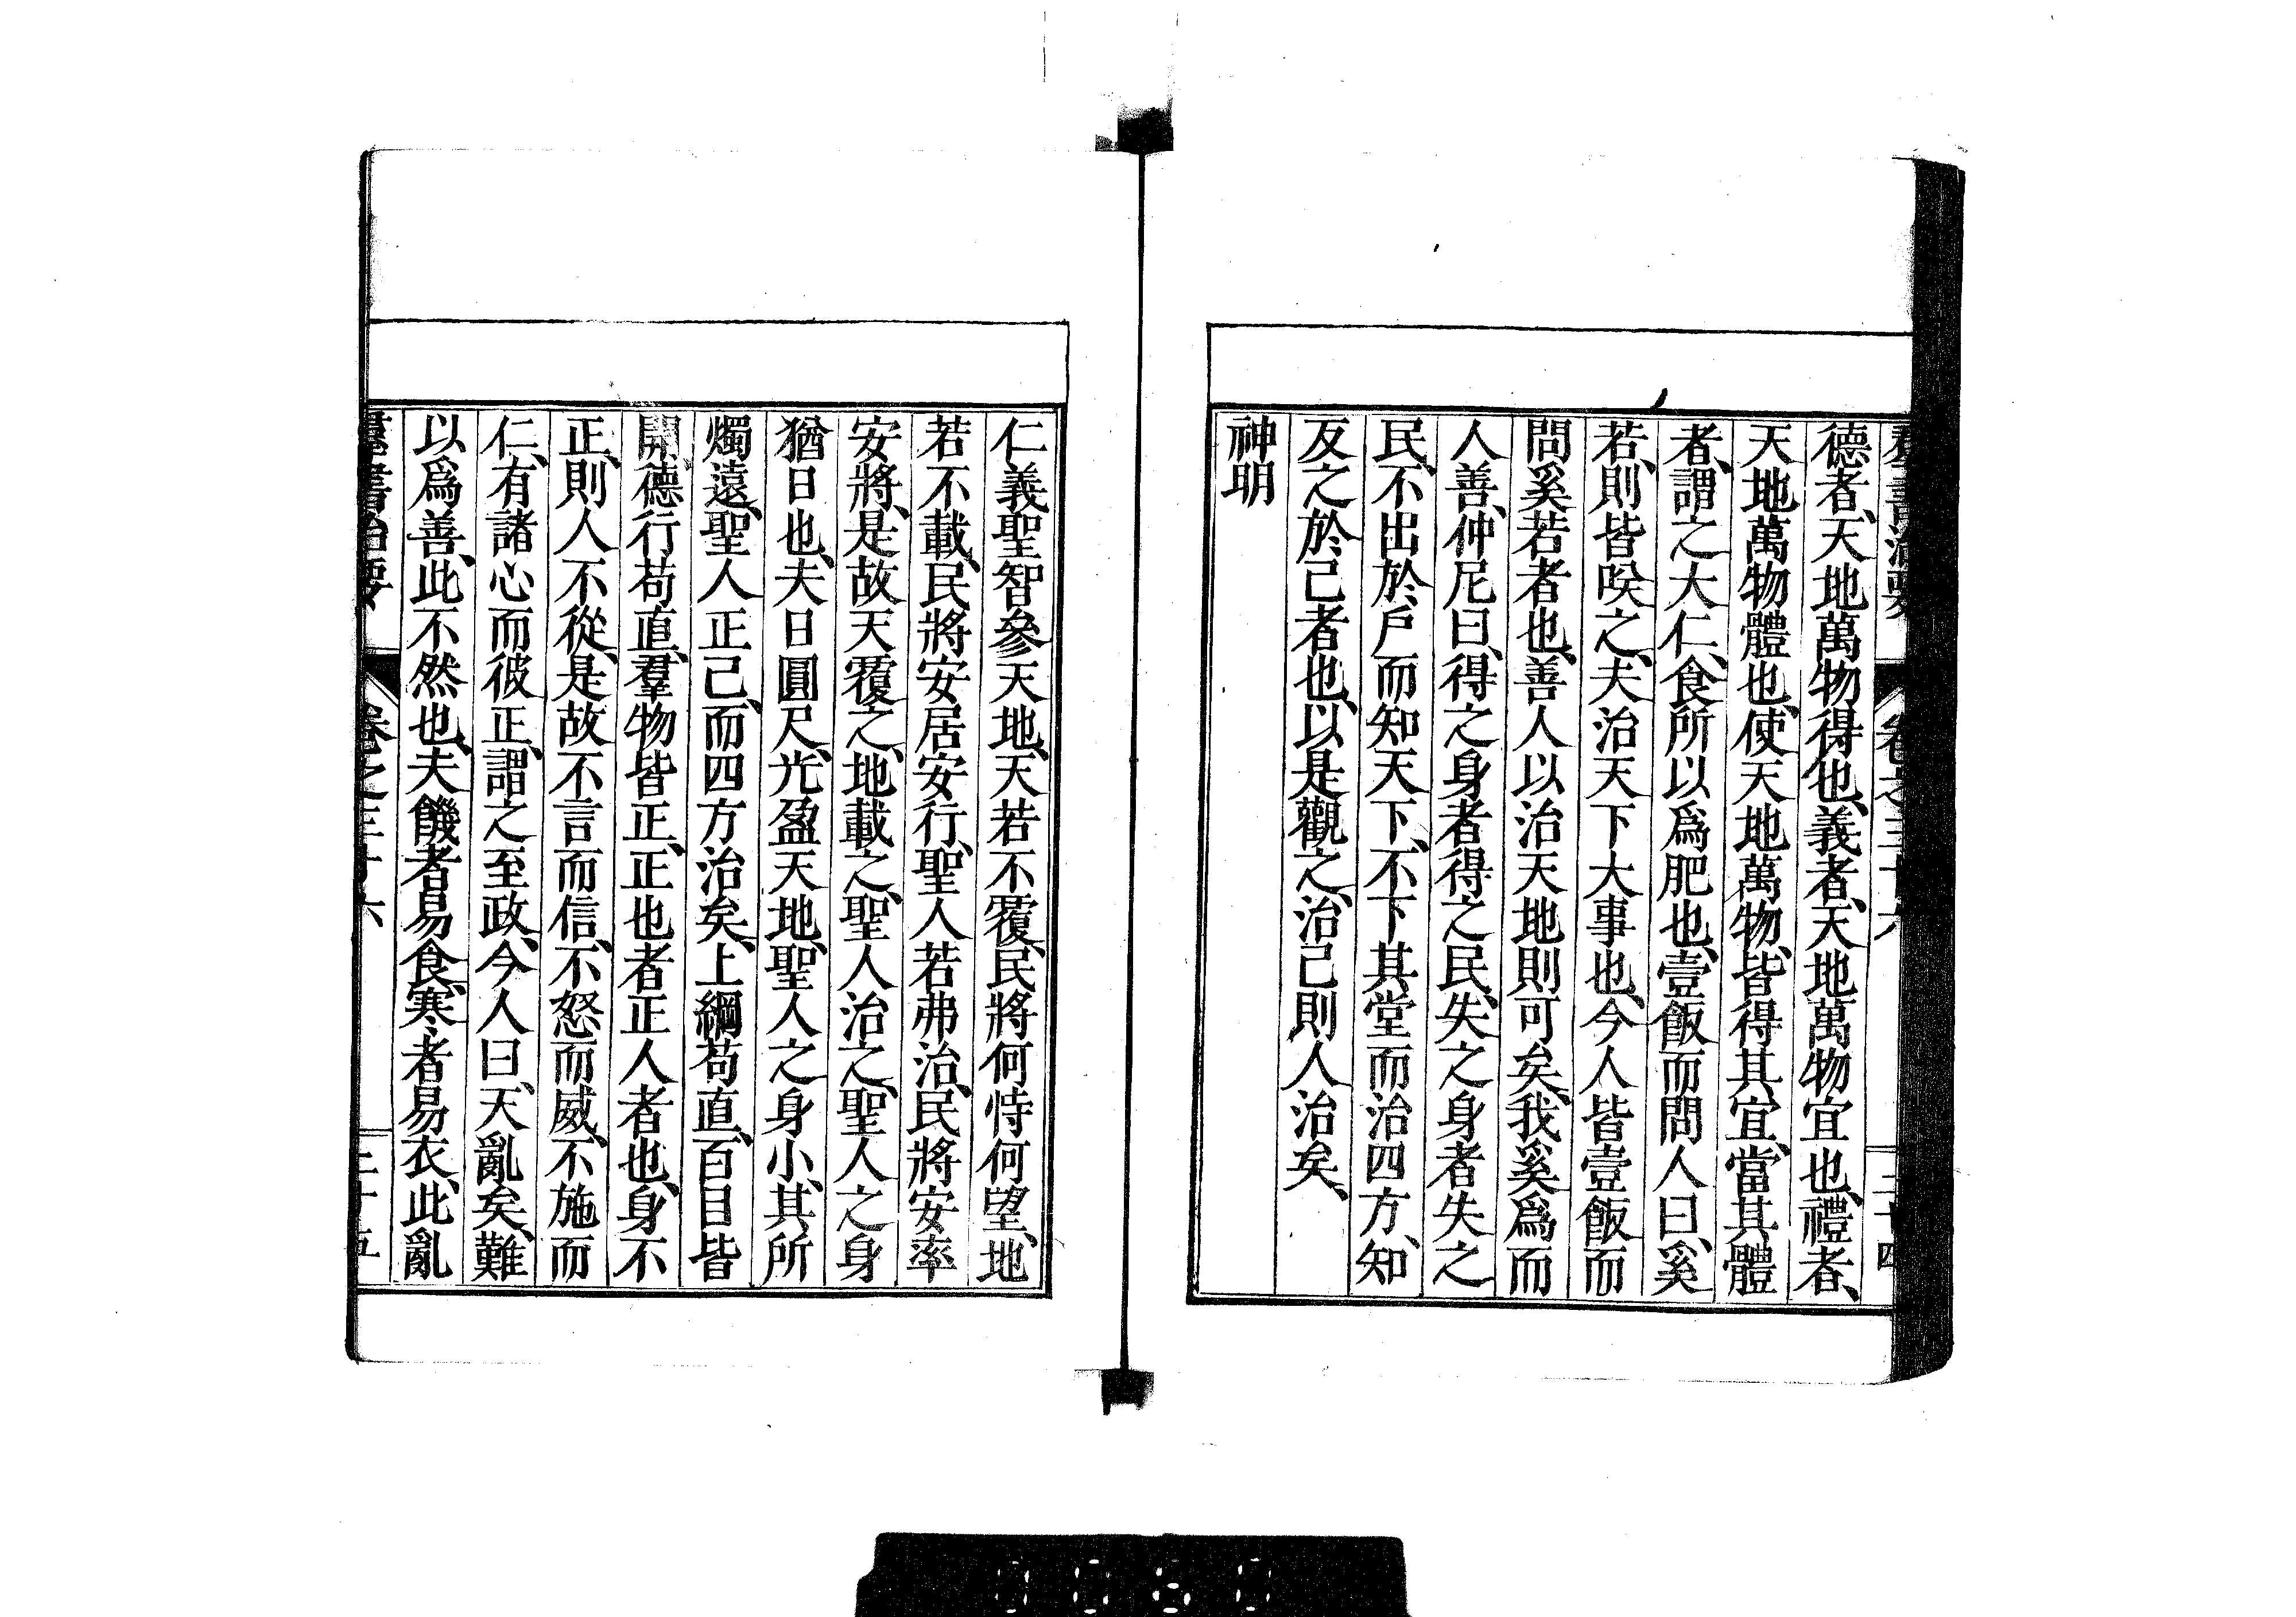 羣書治要 卷之三十六 二十四
德者、天地萬物得也、義者、天地萬物宜也、禮者、
天地萬物體也、使天地萬物、皆得其宜、當其體
者、謂之大仁、食所以爲肥也、壹飯而問人曰、奚
若、則皆唉之、夫治天下大事也、今人皆壹飯而
問奚若者也、善人以治天地則可矣、我奚爲而
人善、仲尼曰、得之身者得之民、失之身者失之
民、不出於戶而知天下、不下其堂而治四方、知
反之於己者也、以是觀之、治己則人治矣、
神明
仁義聖智參天地、天若不覆、民將何恃何望、地
若不載、民將安居安行、聖人若弗治、民將安率
安將、是故天覆之、地載之、聖人治之、聖人之身
猶日也、夫日圓尺、光盈天地、聖人之身小、其所
燭遠、聖人正己、而四方治矣、上綱苟直、百目皆
開、德行苟直、羣物皆正、正也者正人者也、身不
正、則人不從、是故不言而信、不怒而威、不施而
仁、有諸心而彼正、謂之至政、今人曰、天亂矣、難
以爲善、此不然也、夫饑者易食、寒者易衣、此亂
羣書治要 卷之三十六 二十五